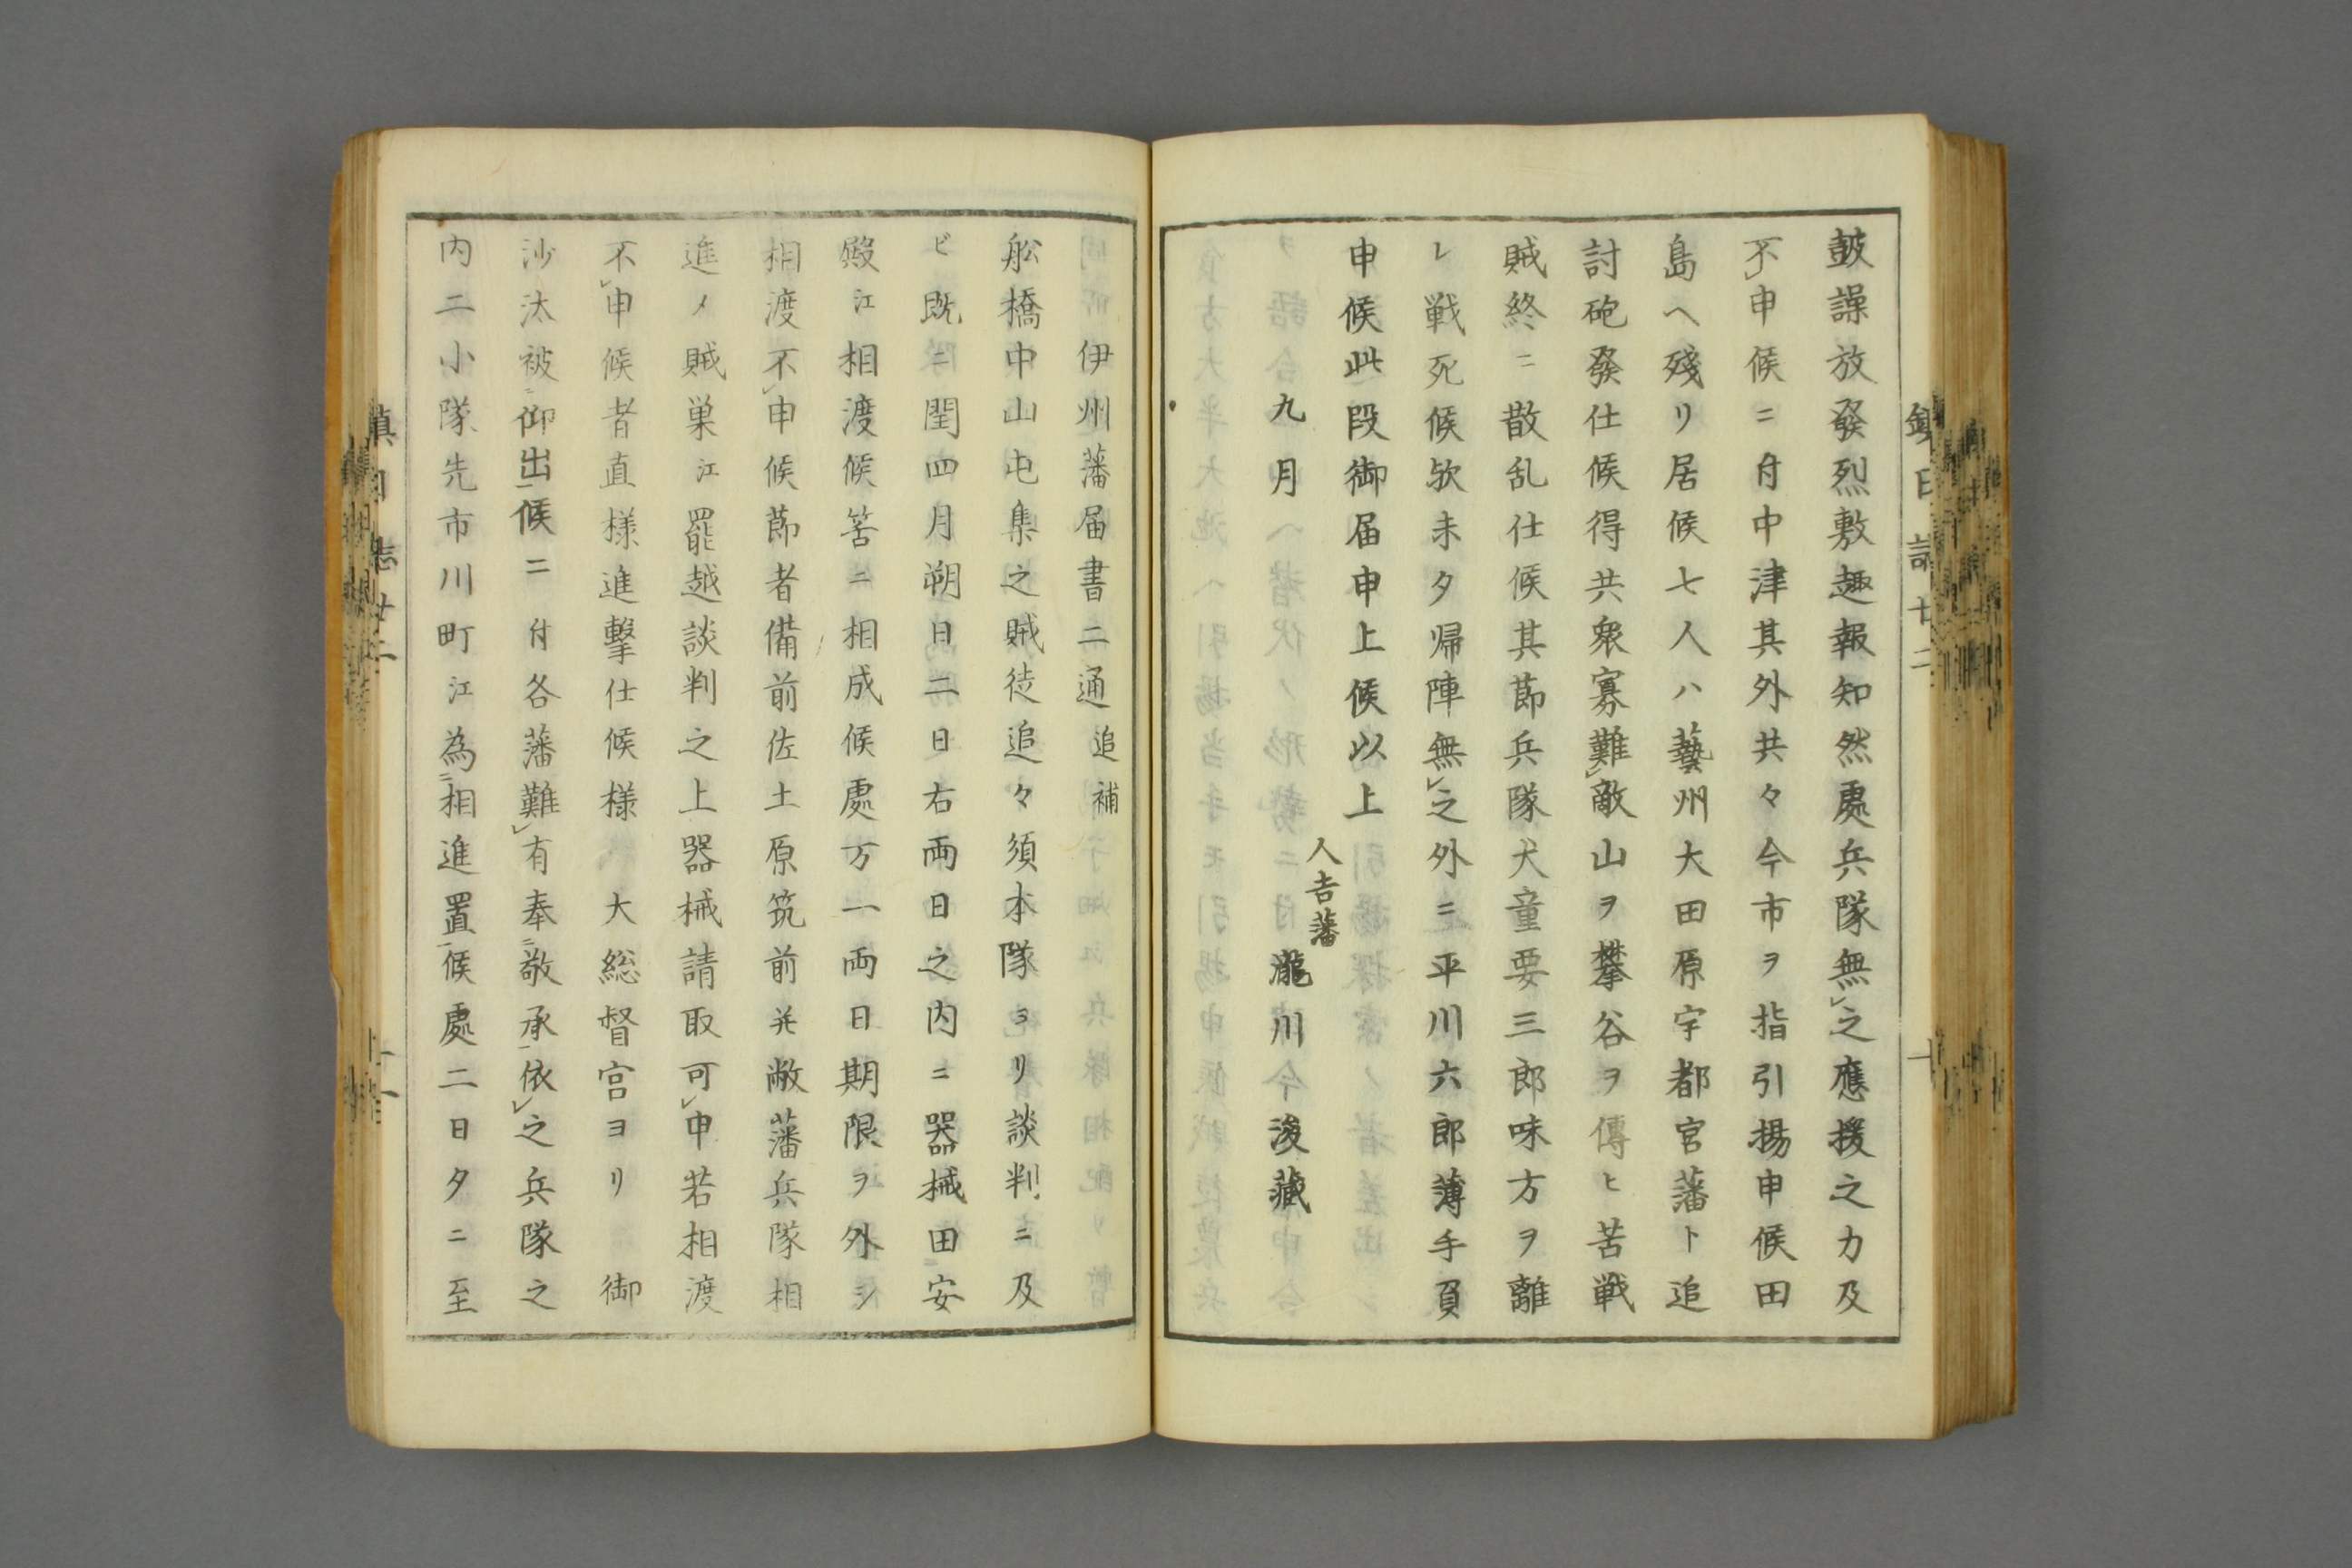 皷譟放發烈敷趣報知然處兵隊無㆑之應援之力及
不㆑申候ニ付中津其外共々今市ヲ指引揚申候田
島へ殘リ居候七人ハ藝州大田原宇都宮藩ト追
討砲發仕候得共衆寡難㆑敵山ヲ攀谷ヲ傳ヒ苦戦
賊終ニ散乱仕候其節兵隊犬童要三郎味方ヲ離
レ戦死候欤未タ帰陣無㆑之外ニ平川六郎薄手負
申候此段御届申上候以上
九月
人吉藩
瀧川今浚藏
伊州藩届書二通追補
舩橋中山屯集之賊徒追々須本隊ヨリ談判ニ及
ビ既ニ閏四月朔日二日右両日之内ニ器械田安
殿江相渡候筈ニ相成候處万一両日期限ヲ外シ
相渡不㆑申候節者備前佐土原筑前并敝藩兵隊相
進メ賊巣江罷越談判之上器械請取可㆑申若相渡
不㆑申候者直様進撃仕候様 大総督宮ヨリ 御
沙汰被㆓仰出㆒候ニ付各藩難㆑有奉㆓敬承㆒依㆑之兵隊之
内二小隊先市川町江為㆓相進置㆒候處二日夕ニ至